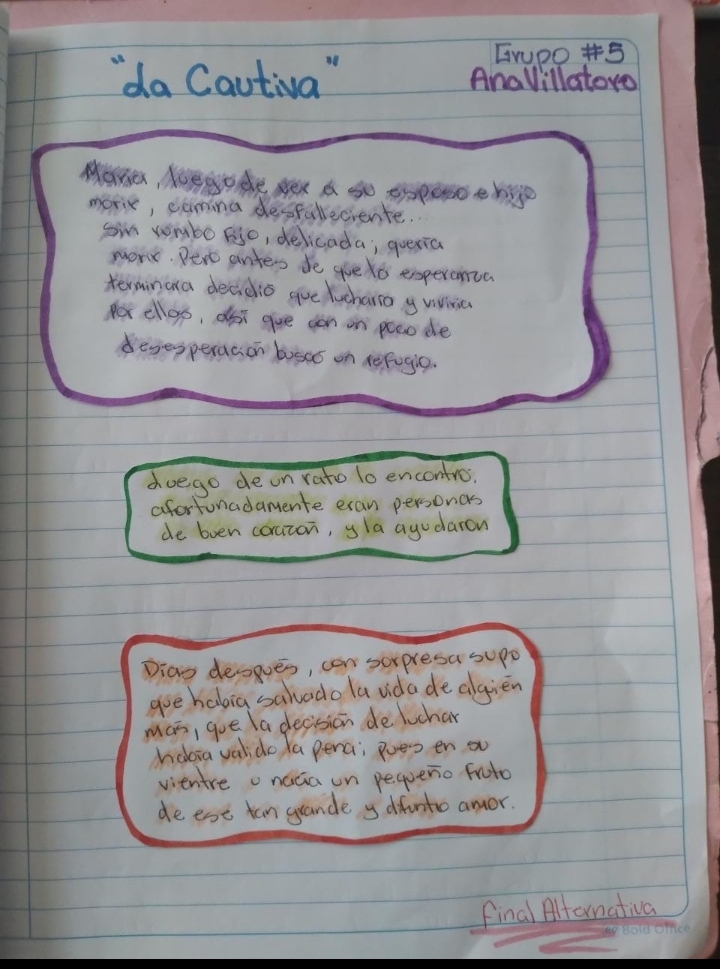 "La Cautiva"
Grupo #5
Ana Villatoro
Maria, luego de ver a su esposo e hijo
morir, camina desfalleciente...
sin rumbo fijo, delicada; quería
morir. Pero antes de que la esperanza
terminara decidió que lucharia y viviria
por ellos, así que con un poco de
desesperación buscó un refugio.
Luego de un rato lo encontro.
afortunadamente eran personas
de buen corazón, y la ayudaron
Días después, con sorpresa supo
que había salvado la vida de alguién
más, que la decisión de luchar
había valido la pena; pues en su
vientre nacía un pequeño fruto
de ese tan grande y difunto amor.
Final Alternativa
Bold Office